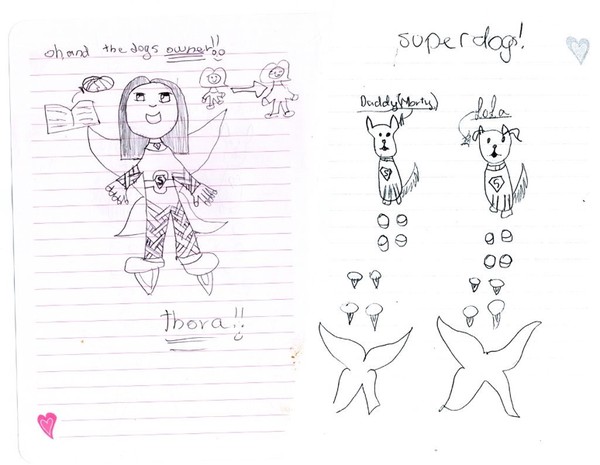 oh and the dogs owner!!
thora!!
superdogs!
Daddy(Morty)
Lola
S
S
S